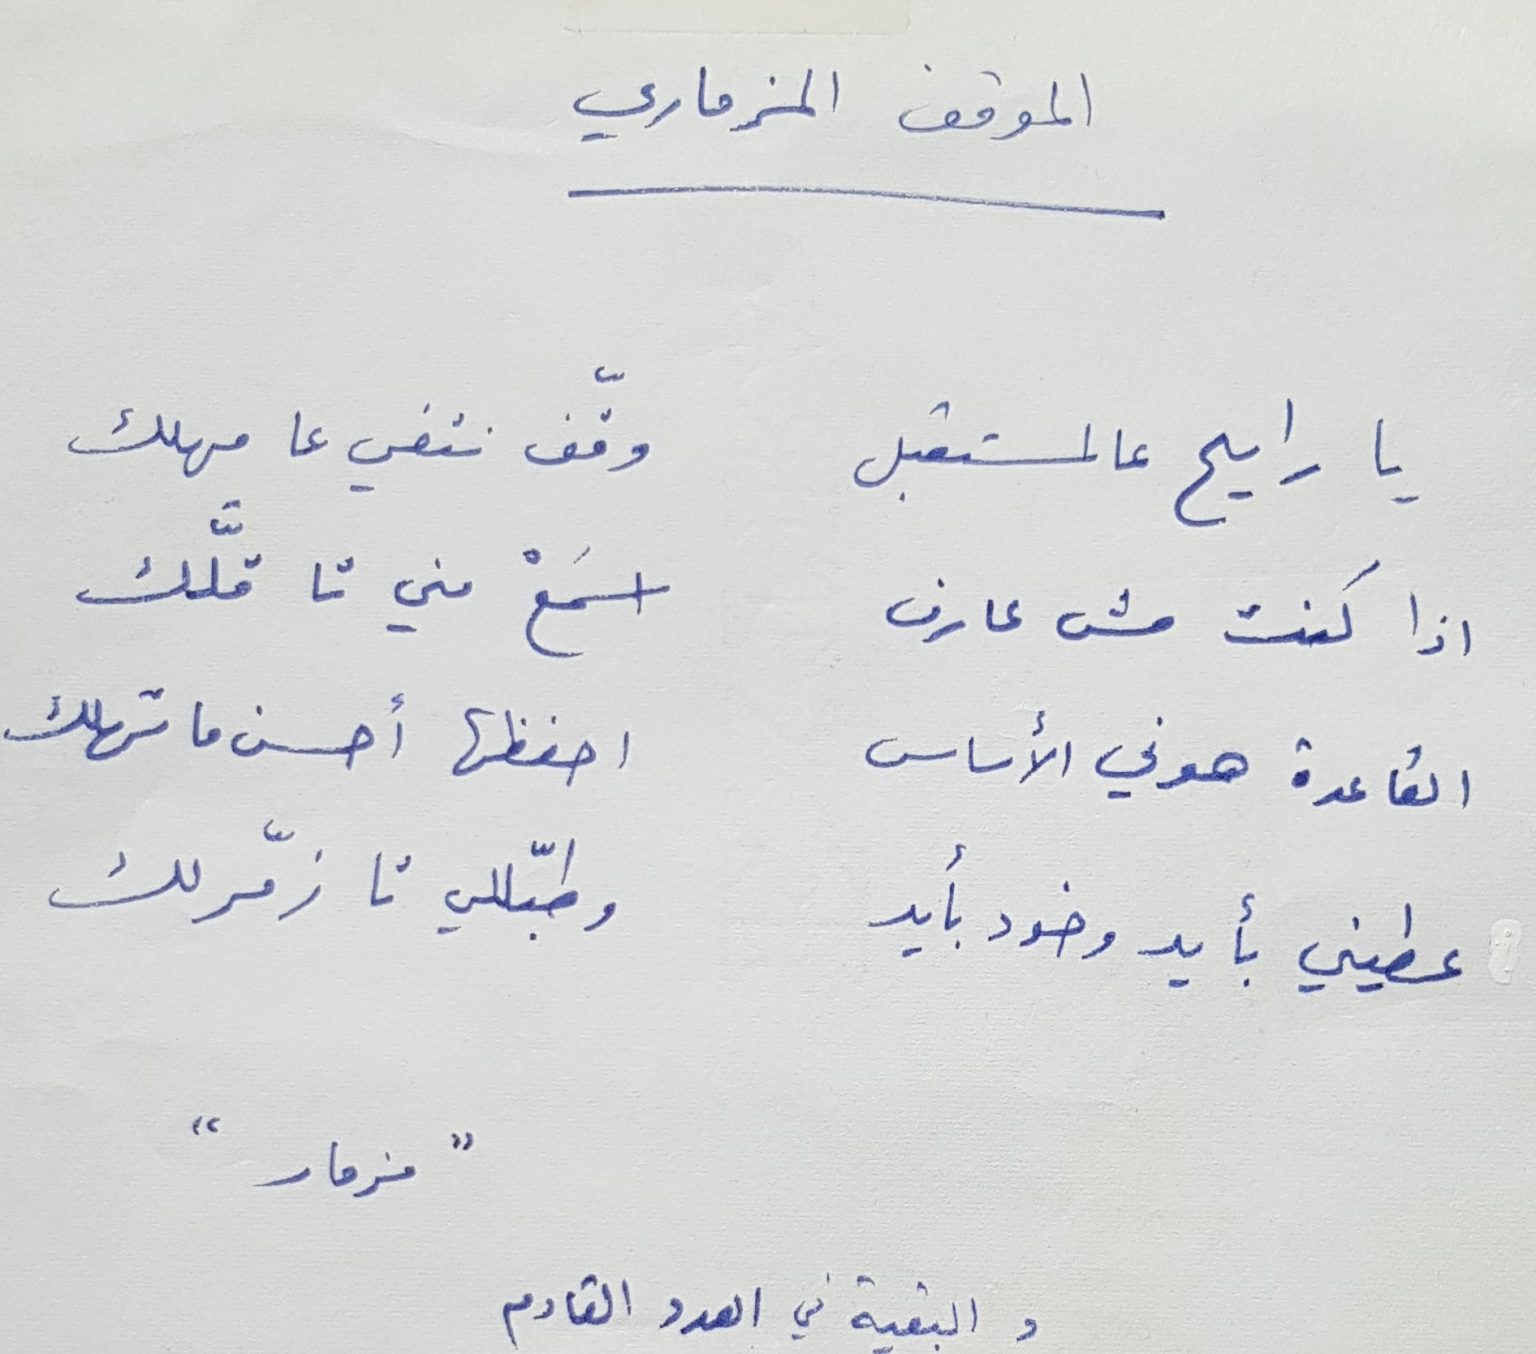 الموقف المزماري
يا رايح عالمستقبل وقّف نتفي عا مهلك
اذا كنت مش عارف اسَمعْ مني تا قلَّك
القاعدة هوني الأساس احفظها أحسن ما تهلك
عطيني بأيد وخود بأيد وطبّللي تا زمّرلك
"مزمار"
و البقية في العدد القادم